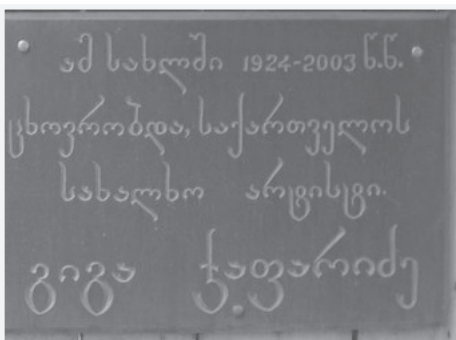 ამ სახლში 1924-2003 წ.წ.
ცხოვრობდა, საქართველოს
სახალხო არტისტი.
გიგა ჯაფარიძე